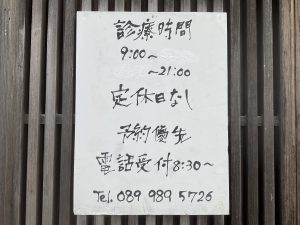 診療時間
9:00～
～21:00
定休日なし
予約優先
電話受付8:30～
Tel. 089 989 5726